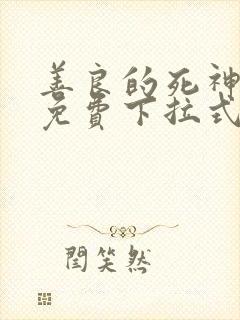 善良的死神
免费下拉式
闰笑然